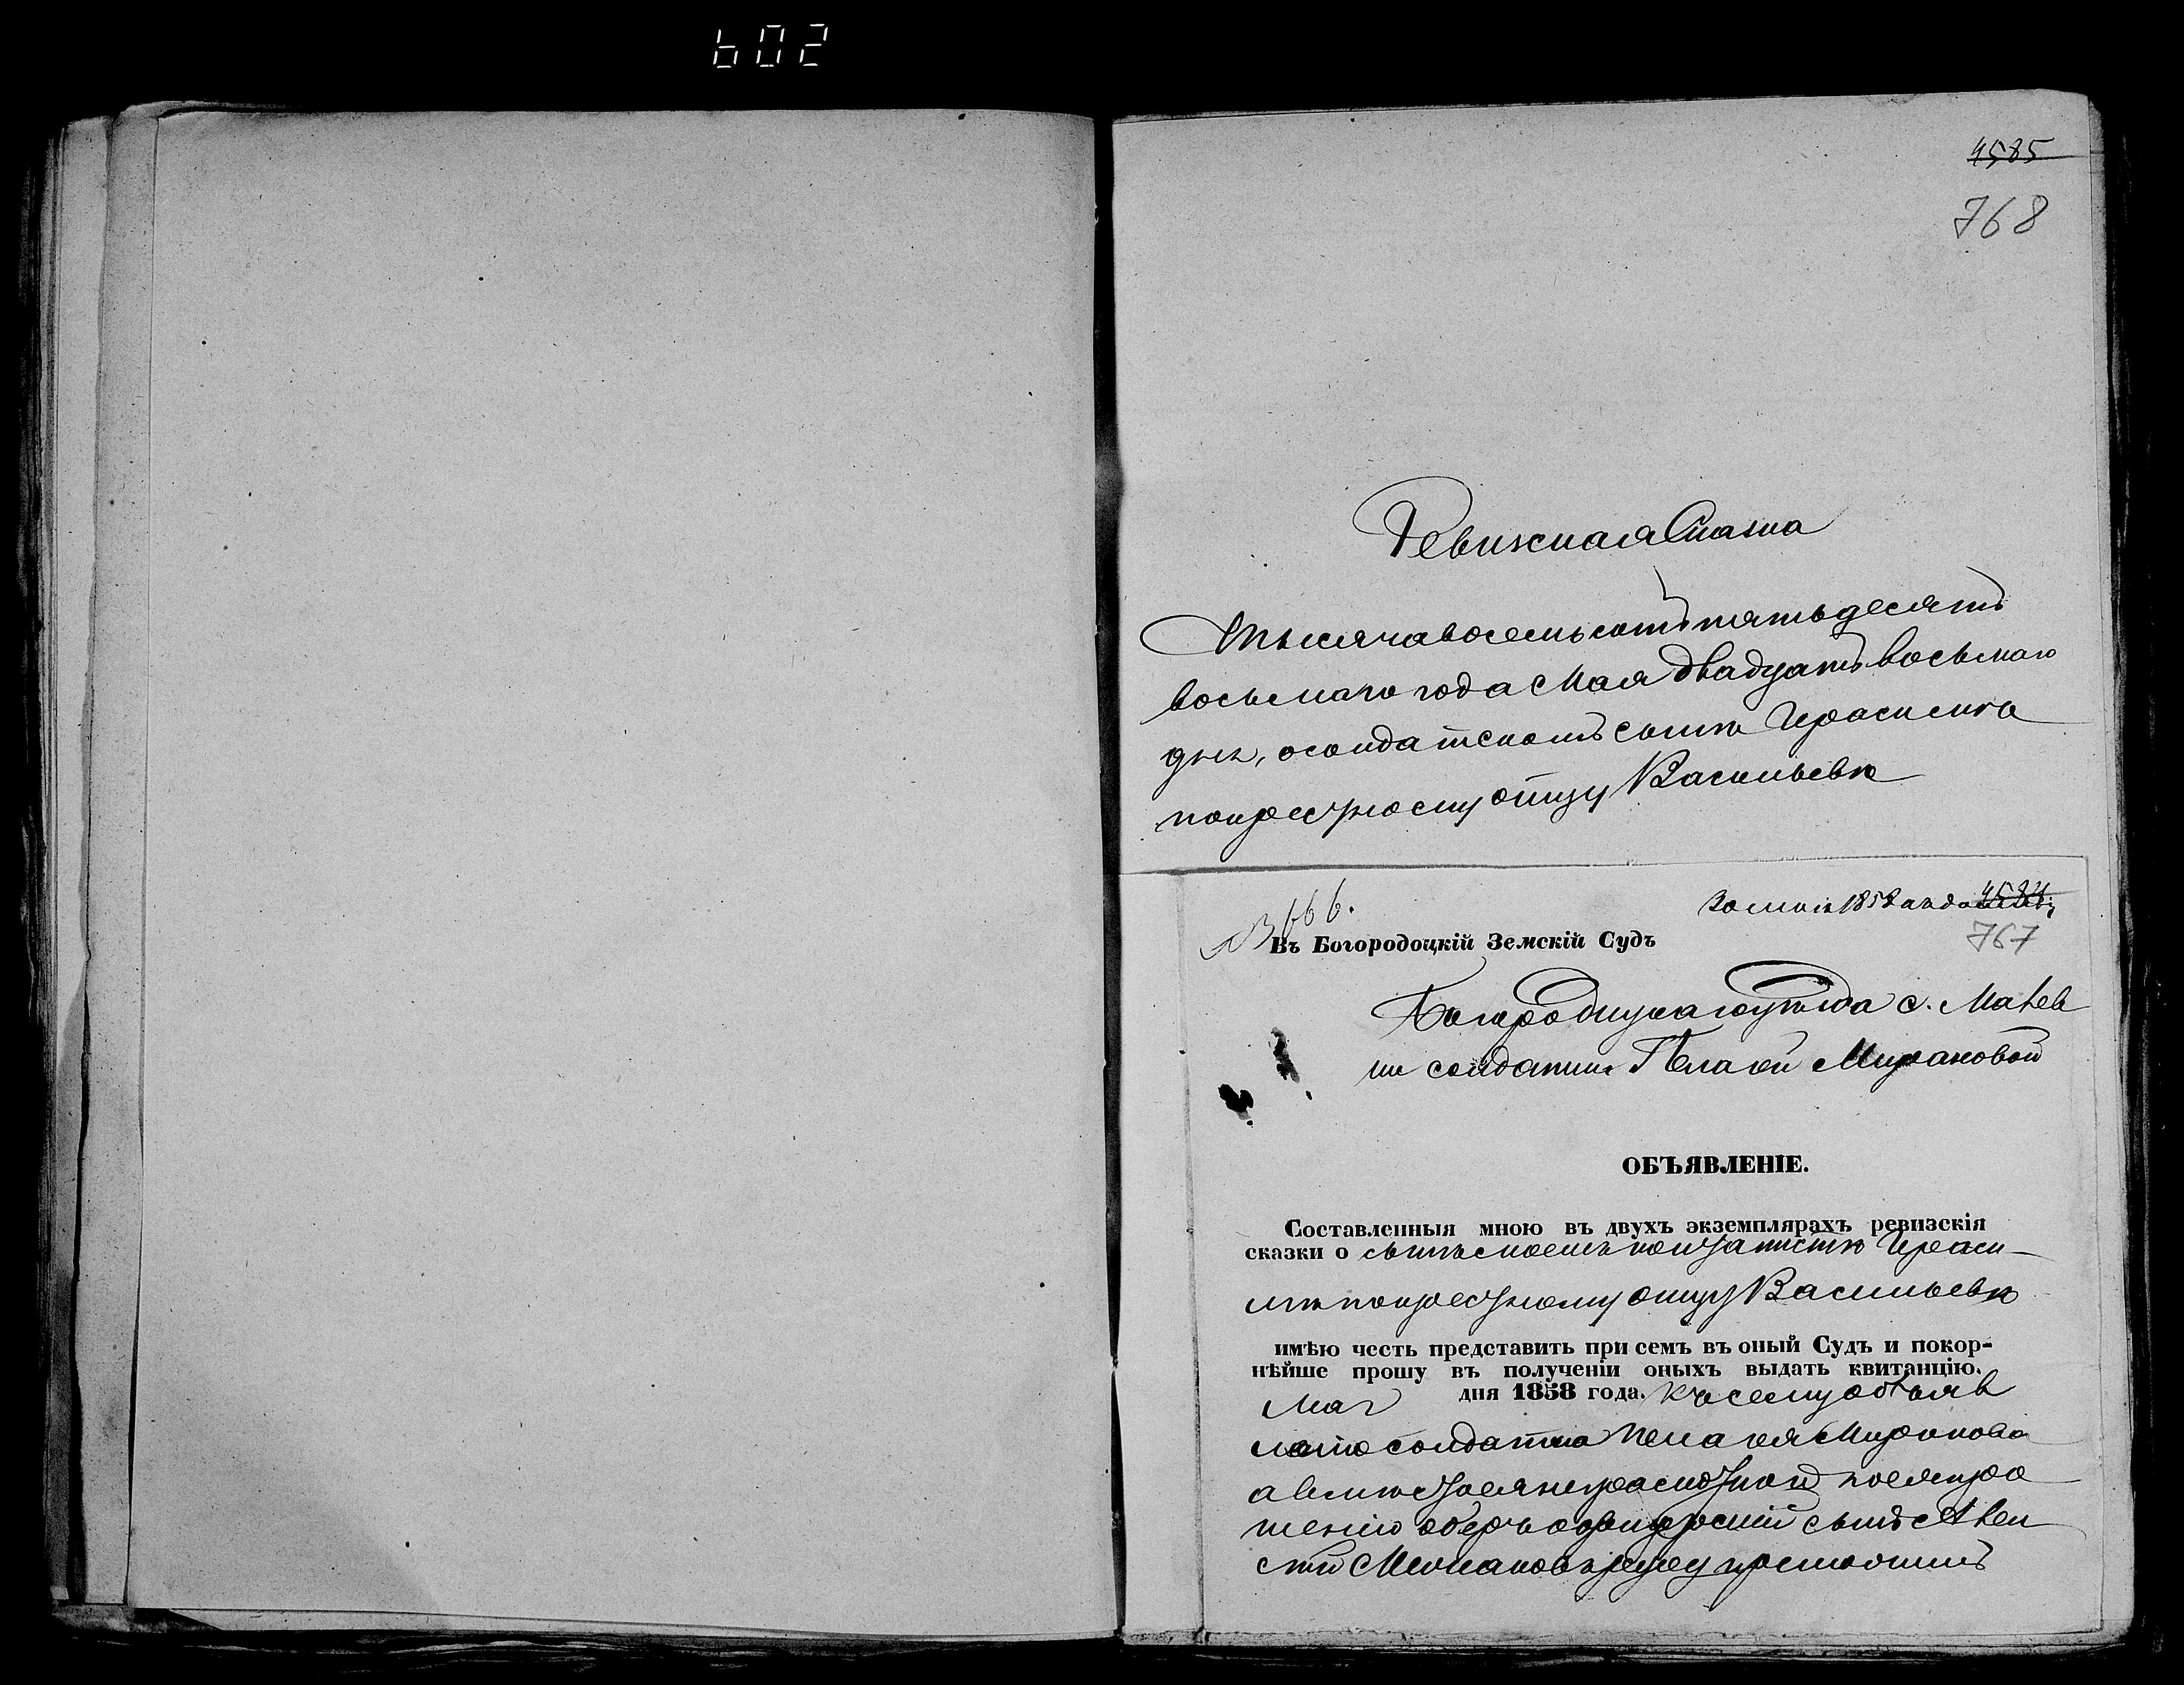 602
4585
768
Ревижская Сказка
Тысяча восемьсотъ пятьдесятъ
восьмаго года Мая двадцать восьмаго
дня, о солдатскомъ сынѣ Герасимѣ
покрестному отцу Васильевѣ
666.
30 Мая 1858 года
4584
767
Въ Богородоцкій Земскій Судъ
Богородицкаго уѣзда с.
солдатки Пелагеи Мироновой
ОБЪЯВЛЕНІЕ.
Составленныя мною въ двухъ экземплярахъ ревизскія
сказки о сынѣ моемъ незаписанномъ Гераси-
мѣ покрестному отцу Васильевѣ
имѣю честь представить при семъ въ оный Судъ и покор-
нѣйше прошу въ полученіи оныхъ выдать квитанцію.
Мая дня 1858 года. Къ сему объяв
солдатка Пелагея Миронова
а вмѣсто
шенію сынъ
руку приложилъ